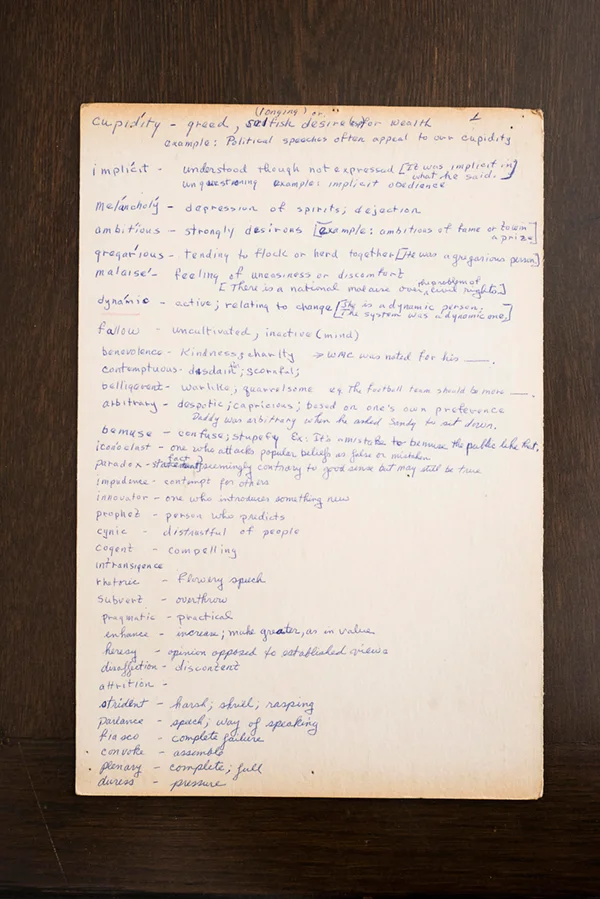 (longing) or
cupidity - greed, selfish desire for wealth 1
example: Political speeches often appeal to our cupidity
implicit - understood though not expressed [It was implicit in
what he said.]
unquestioning example: implicit obedience
melancholy - depression of spirits; dejection
ambitious - strongly desirous [example: ambitious of fame or to win
a prize]
gregarious - tending to flock or herd together [He was a gregarious person]
malaise - feeling of uneasiness or discomfort
the problem of
[There is a national malaise over civil rights.]
dynamic - active; relating to change [She is a dynamic person;
The system was a dynamic one.]
fallow - uncultivated, inactive (mind)
benevolence - kindness; charity → WAC was noted for his ___.
contemptuous - disdain; scornful;
belligerent - warlike, quarrelsome e.g. The football team should be more ___.
arbitrary - despotic; capricious; based on one's own preference
Daddy was arbitrary when he asked Sandy to sit down.
bemuse - confuse; stupefy Ex: It's a mistake to bemuse the public like that.
iconoclast - one who attacks popular beliefs as false or mistaken
fact
paradox - statement seemingly contrary to good sense but may still be true
impudence - contempt for others
innovator - one who introduces something new
prophet - person who predicts
cynic - distrustful of people
cogent - compelling
intransigence
rhetoric - flowery speech
subvert - overthrow
pragmatic - practical
enhance - increase; make greater, as in value
heresy - opinion opposed to established views
disaffection - discontent
attrition -
strident - harsh; shrill; rasping
parlance - speech; way of speaking
fiasco - complete failure
convoke - assemble
plenary - complete; full
duress - pressure